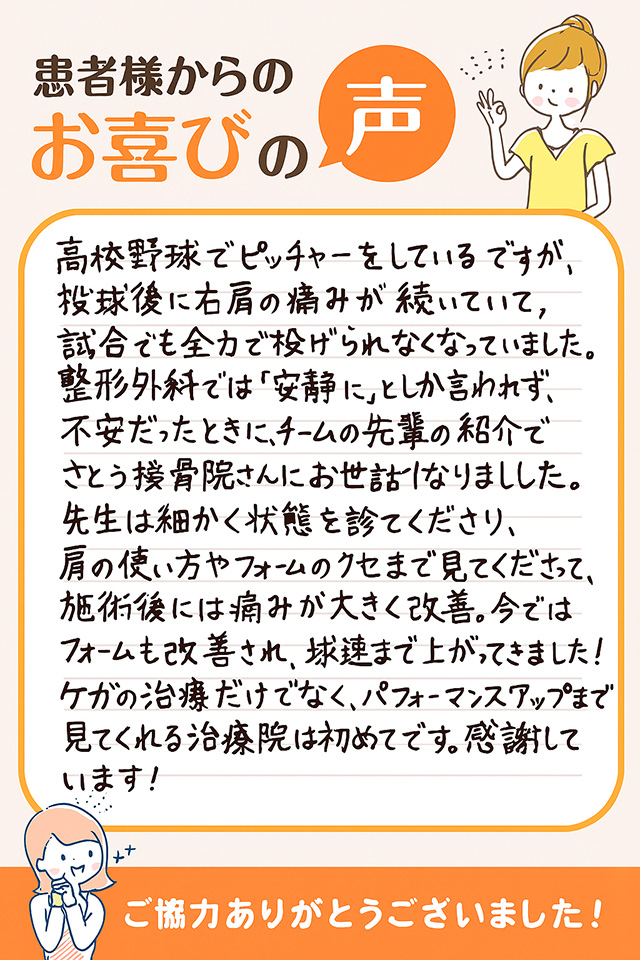 患者様からの
お喜びの声
高校野球でピッチャーをしているですが、
投球後に右肩の痛みが続いていて,
試合でも全力で投げられなくなっていました。
整形外科では「安静に」としか言われず、
不安だったときに、チームの先輩の紹介で
さとう接骨院さんにお世話になりましした。
先生は細かく状態を診てくださり、
肩の使い方やフォームのクセまで見てくださって、
施術後には痛みが大きく改善。今では
フォームも改善され、球速まで上がってきました!
ケガの治療だけでなく、パフォーマンスアップまで
見てくれる治療院は初めてです。感謝して
います!
ご協力ありがとうございました!